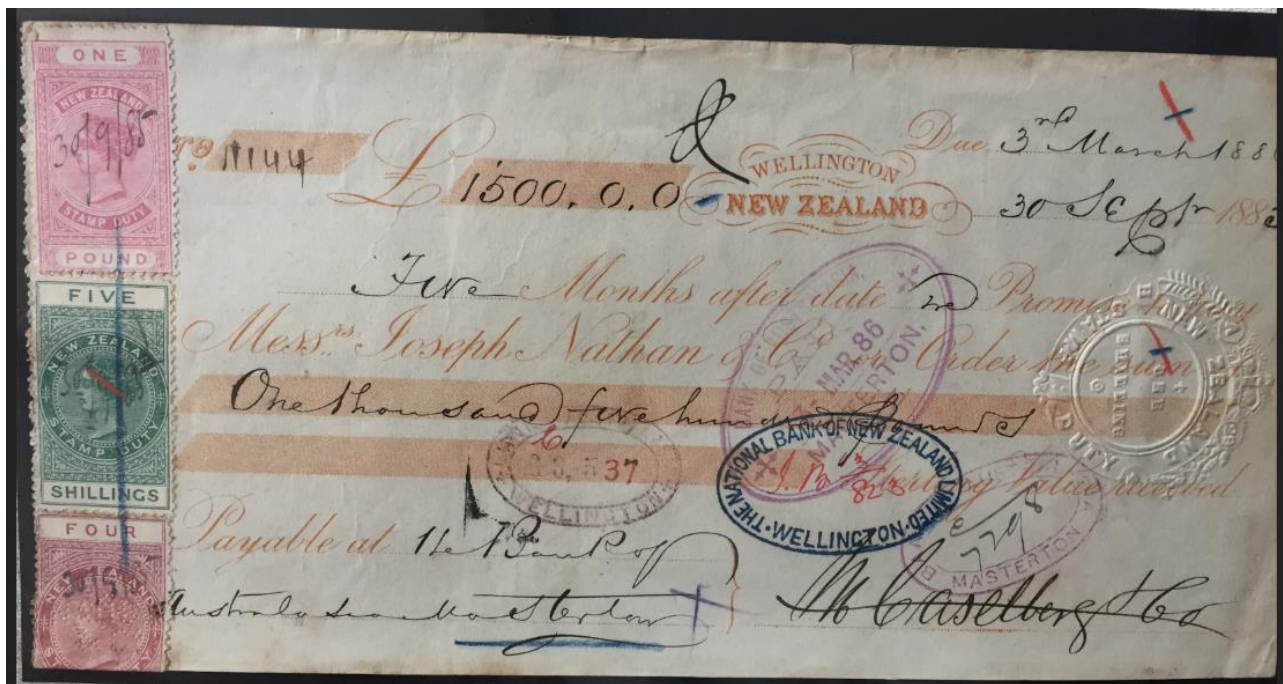 ONE
NEW ZEALAND
30/9/85
STAMP DUTY
POUND
FIVE
NEW ZEALAND
STAMP DUTY
SHILLINGS
FOUR
30/9/85
No. 11144
£ 1500.0.0
WELLINGTON
NEW ZEALAND
Due 3rd March 188
30 Septr 188
Five Months after date we Promise to Pay
Messrs. Joseph Nathan & Co. or Order the sum of
One thousand five hundred Pounds
Sterling Value received
Payable at The Bank of
Australasia Masterton
M Caselberg & Co
MAR 86
MASTERTON.
37
WELLINGTON
THE NATIONAL BANK OF NEW ZEALAND LIMITED
WELLINGTON
7298
MASTERTON
STAMP DUTY
NEW ZEALAND
SHILLINGS